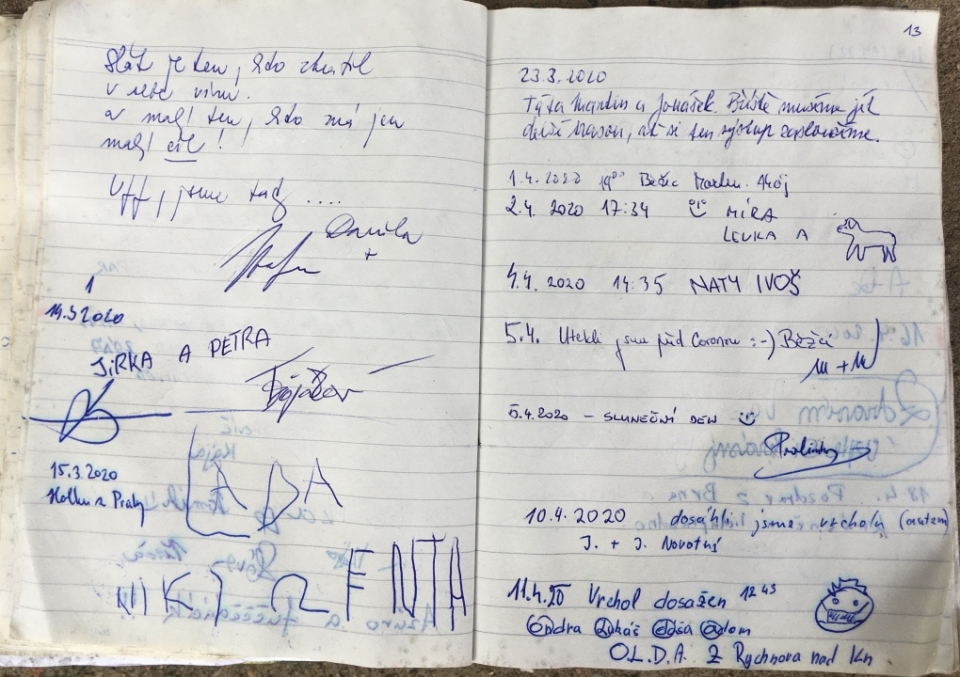 je ten, kdo ztratil
v sebe víru.
a malý ten, kdo má jen
malý cíl!
Uff, jsme tady ....
Danila
+
1
14.3.2020
JIRKA A PETRA
15.3.2020
Holku z Prahy
LADA
13
23.3.2020
Táta Martin a Jonášek. Příště musíme jít
delší trasou, ať si ten výstup
1.4.2020 19⁰⁰ Běžec Martin. Ahoj
2.4. 2020 17:34 MÍRA
LENKA A
4.4. 2020 14:35 NATY IVOŠ
5.4. Utekli jsme před Coronou :-) Běžci
M + M
5.4.2020 – SLUNEČNÍ DEN
10.4.2020 dosáhli jsme vrcholu (autem)
J. + J. Novotní
11.4.20 Vrchol dosažen 12 43
Ondra Lukáš Dáša Adam
O.L.D.A. Z Rychnova nad Kn.